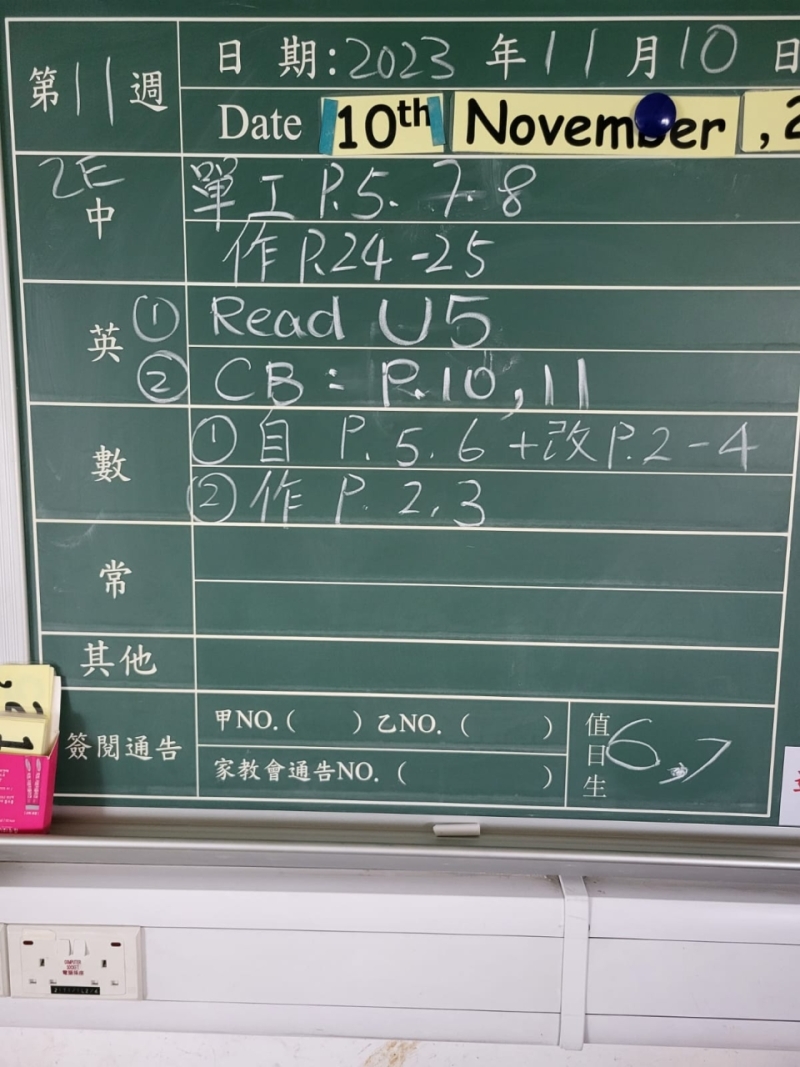 第11週
日期:2023年11月10日
Date 10th November , 2
2E
中
單工 P.5. 7. 8
作 P.24-25
英
① Read U5
② CB: P.10, 11
數
① 自 P. 5. 6 + 改 P.2-4
② 作 P. 2. 3
常
其他
簽閱通告
甲NO.( ) 乙NO.( )
家教會通告NO.( )
值日生 6,7
COMPUTER
SOCKET
電腦插座